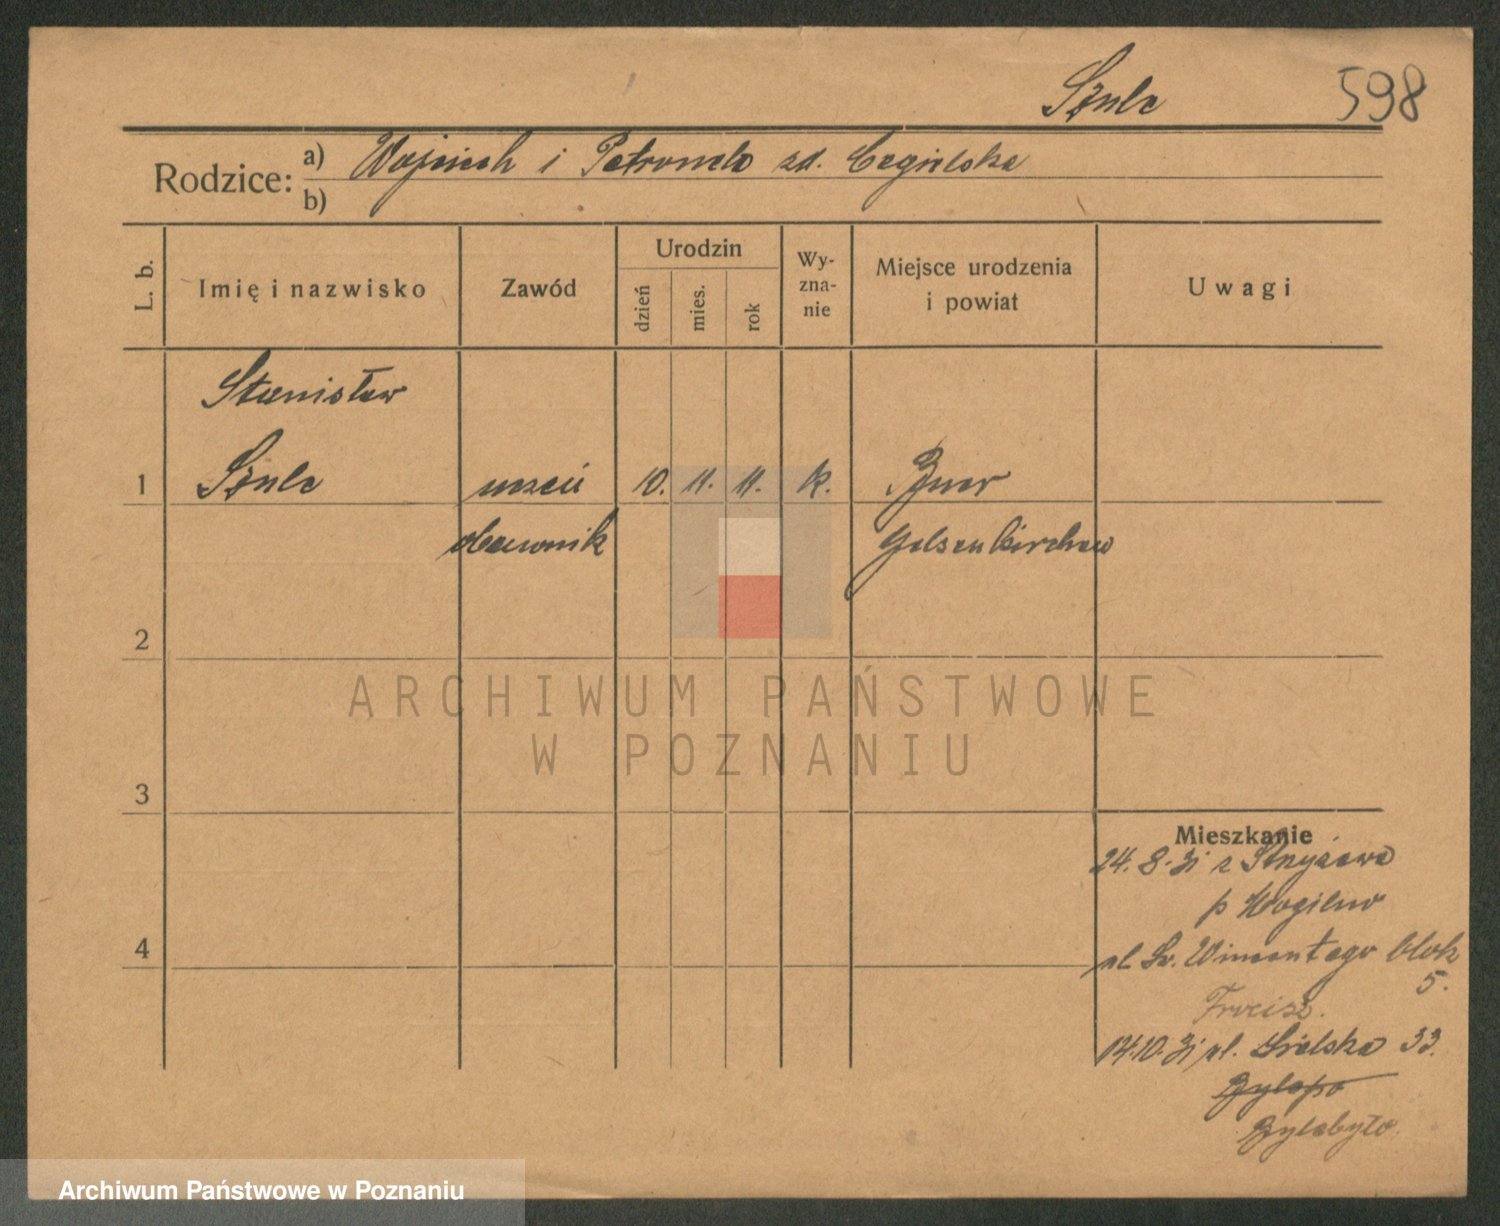 Szulc
598
Rodzice:
a) Wojciech i Petronela zd. Cegielska
b)
L. b.
Imię i nazwisko
Zawód
Urodzin
dzień
mies.
rok
Wy-
zna-
nie
Miejsce urodzenia
i powiat
Uwagi
Stanisław
1 Szulc uczeń 10. 11. 11. k. Buer
Gelsenkirchen
2
ARCHIWUM PAŃSTWOWE
W POZNANIU
3
Mieszkanie
24. 8. 31 z
p Mogilno
ul. Św. Wincentego blok
5.
14.10.31 ul. 33.
4
Archiwum Państwowe w Poznaniu